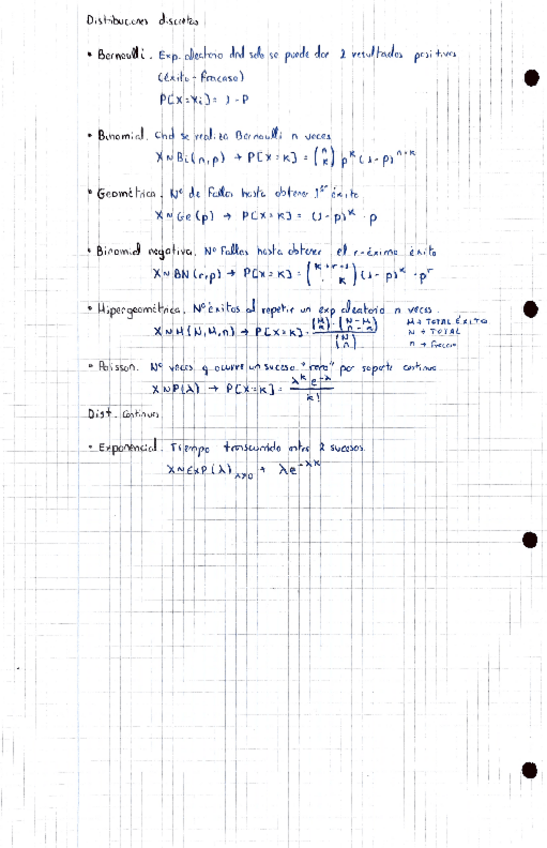 Distribuciones discretas
• Bernoulli. Exp. aleatorio dnd solo se puede dar 2 resultados positivos
(éxito - fracaso)
P[X=Xi] = 1-P
• Binomial. Cnd se realiza Bernoulli n veces
X~Bi(n,p) → P[X=K] = (n K) p^K (1-p)^n-K
• Geométrica. Nº de Fallos hasta obtener 1er éxito
X~Ge(p) → P[X=K] = (1-p)^K · p
• Binomial negativa. Nº Fallos hasta obtener el r-éximo éxito
X~BN(r,p) → P[X=K] = (K+r-1 K) (1-p)^K · p^r
• Hipergeométrica. Nº éxitos al repetir un exp aleatorio n veces
X~H(N,M,n) → P[X=K] = (M K)·(N-M n-K) / (N n)
M → TOTAL ÉXITO
N → TOTAL
n →
• Poisson. Nº veces q ocurre un suceso "raro" por soporte continuo
X~P(λ) → P[X=K] = λ^K e^-λ / K!
Dist. Continuas
• Exponencial. Tiempo transcurrido entre 2 sucesos.
X~EXP(λ) λ>0 → λe^-λx